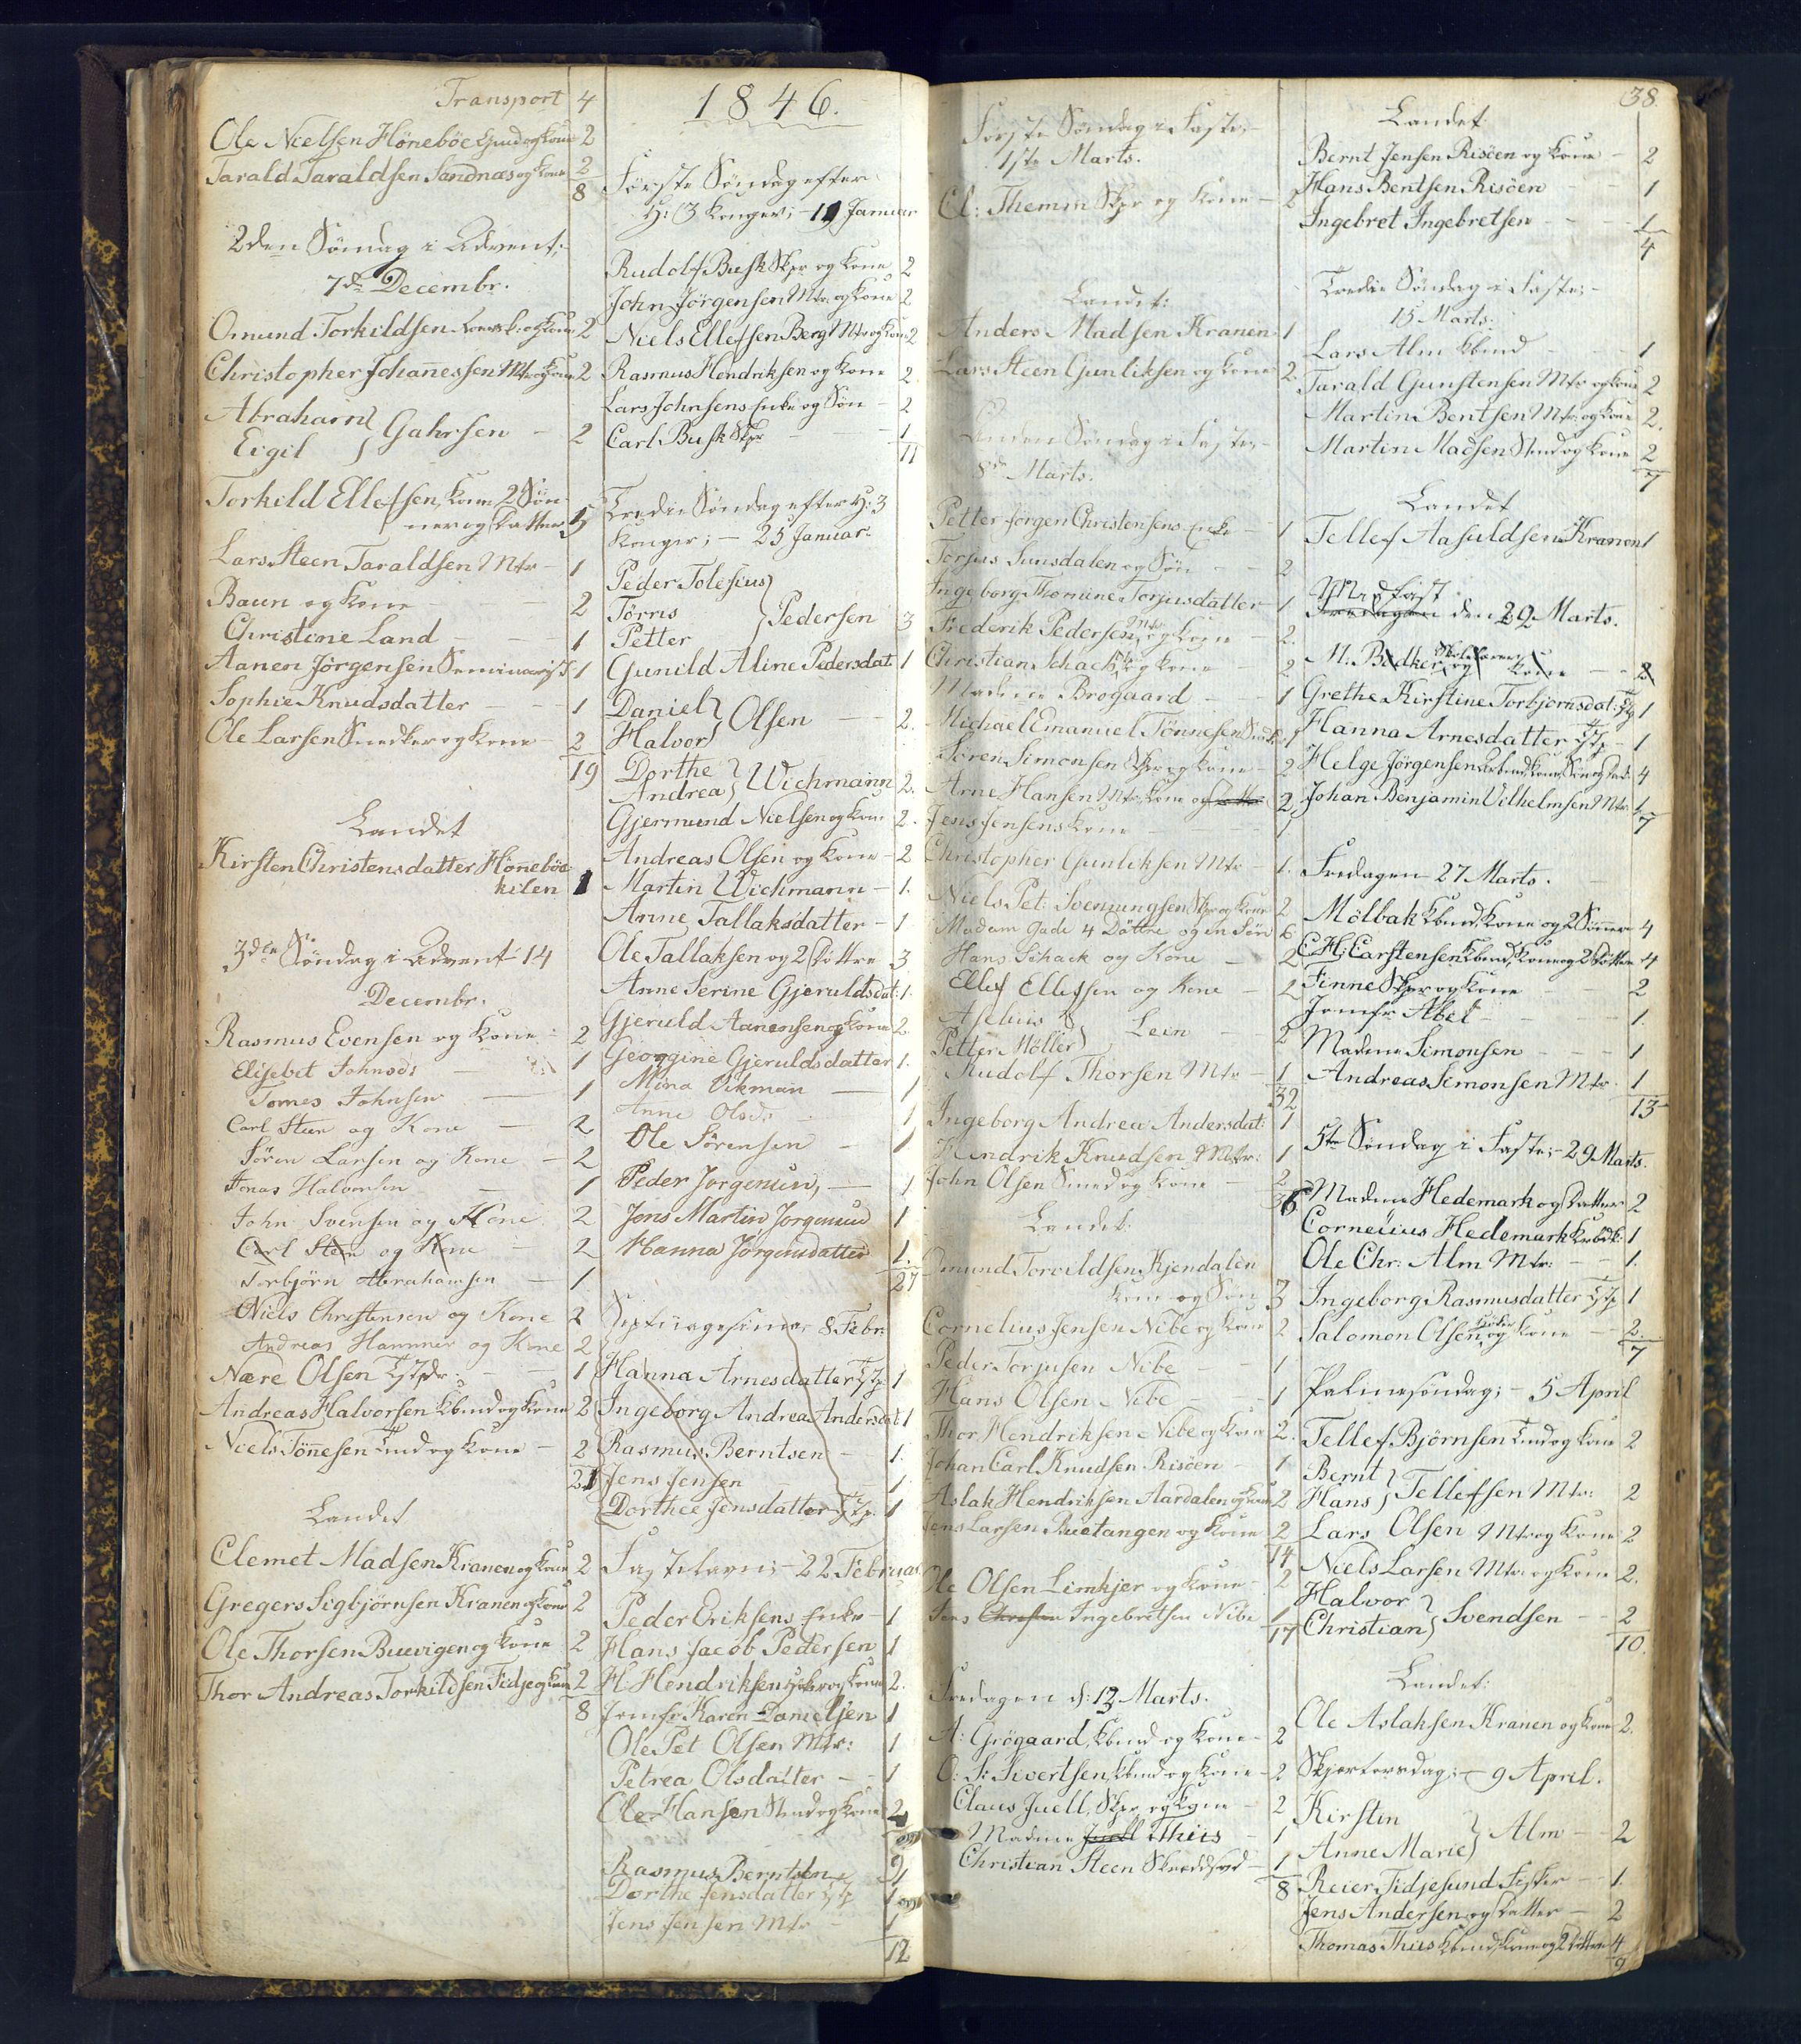 Transport 4
Ole Nielsen Höneböe Gmd og Kone 2
Tarald Taraldsen Sandnæs og Kone 2
8
2den Söndag i Advent;
7de Decembr.
Omund Torkildsen og Kone 2
Christopher Johannessen Mtr og Kone 2
Abraham } Gahrsen - 2
Eigil
Torkild Ellefsen, Kone, 2 Søn-
ner og Datter 5
Lars Steen Taraldsen Mtr - 1
Baun og Kone - 2
Christine Land - 1
Aanen Jörgensen Seminarist 1
Sophie Knudsdatter - 1
Ole Larsen Snedker og Kone 2
19
Landet
Kirsten Christensdatter Hönneböe
kilen 1
3die Söndag i Advent 14
Decembr.
Rasmus Evensen og Kone 2
Elisebet Johnsdr - 1
Tomes Johnsen - 1
Carl Steen og Kone - 2
Sören Larsen og Kone - 2
Jonas Halvorsen - 1
John Svensen og Kone 2
Carl Steen og Kone - 2
Torbjörn Abrahamsen - 1
Niels Christensen og Kone 2
Andreas Hammer og Kone 2
Nære Olsen Tjtpdr: - 1
Andreas Halvorsen Kbmd og Kone 2
Niels Tönnesen Tmd og Kone - 2
21
Landet
Clemet Madsen Kranen og Kone 2
Gregers Sigbjörnsen Kranen og Kone 2
Ole Thorsen Buevigen og Kone 2
Thor Andreas Torkildsen Fidje og Kone 2
8
1846.
Förste Söndag efter
H: 3 Konger; - 11 Januar
Rudolf Busk Skpr og Kone 2
John Jörgensen Mtr og Kone 2
Niels Ellefsen Berg Mtr og Kone 2
Rasmus Hendriksen og Kone 2.
Lars Johnsens Enke og Sön - 2
Carl Busk Skpr - 1
11
Tredie Söndag efter H: 3
Konger; - 25 Januar
Peder Tolesius }
Törris } Pedersen 3
Petter
Gunild Aline Pedersdat: 1
Daniel } Olsen - 2.
Halvor
Dorthe } Wichmann 2.
Andrea
Gjermund Nielsen og Kone 2.
Andreas Olsen og Kone - 2
Martin Wichmann - 1.
Anne Tallaksdatter - 1
Ole Tallaksen og 2 Döttre 3
Anne Serine Gjeruldsdat: 1.
Gjeruld Aanensen og Kone 2
Georgine Gjeruldsdatter 1.
Mina Vikman - 1
Anne Olsdr - 1
Ole Sörensen - 1
Peder Jorgensen, - 1
Jens Martin Jorgensen 1
Hanna Jörgensdatter 1.
27
Septuagesima 8 Febr:
Hanna Arnesdatter Tjtp: 1
Ingeborg Andrea Andersdat 1
Rasmus Berntsen - 1.
Jens Jensen - 1.
Dorthee Jensdatter Tjtp. 1
Fastelavn; - 22 Februar
Peder Eriksens Enke - 1
Hans Jacob Pedersen 1
H. Hendriksen og Kone 2.
Jomfr Karen Danielsen 1
Ole Pet Olsen Mtr: 1
Petrea Olsdatter - 1
Ole Hansen Smd og Kone 2
9
Rasmus Berntsen 1
Dorthe Jensdatter Tjtp 1
Jens Jensen Mtr - 1
12
38.
Förste Söndag i Faste; -
1ste Marts.
Cl: Themin Skpr og Kone - 2
Landet:
Anders Madsen Kranen. 1
Lars Steen Gunliksen og Kone 2.
Anden Söndag i Faste; -
8de Marts.
Petter Jörgen Christensens Enke - 1
Torjus Sunsdalen og Sön - 2
Ingeborg Thomine Torjusdatter 1
Frederik Pedersen, Mtr og Kone - 2.
Christian Schack og Kone - 2
Madme Brogaard - 1
Michael Emanuel Tönnesen 1
Sören Simonsen Skpr og Kone - 2
Arne Hansen Mtr, Kone og Datter 2
Jens Jensens Kone - 1
Christopher Gunliksen Mtr - 1.
Niels Pet: Svenningsen Skpr og Kone 2
Madam Gade 4 Döttre og en Sön 6
Hans Schack og Kone - 2
Ellef Ellefsen og Kone - 2
} Leen - 2
Petter Möller
Rudolf Thorsen Mtr - 1
32
Ingeborg Andrea Andersdat: 1
Hendrik Knudsen Mtr: 1
John Olsen Smed og Kone - 2
36
Landet.
Omund Torvildsen Kjendalen
Kone og Sön 3
Cornelius Jensen Nibe og Kone 2
Peder Torjusen Nibe - 1
Hans Olsen Nibe - 1
Thor Hendriksen Nibe og Kone 2.
Johan Carl Knudsen Risöen - 1
Aslak Hendriksen Aardalen og Kone 2
Jens Larsen Buetangen og Kone 2
14
Ole Olsen Limkjer og Kone - 2
Jens Christen Ingebretsen Nibe 1
17
Fredagen d: 13 Marts.
A: Grögaard, Kbmd og Kone - 2
O: S: Sivertsen, Kbmd og Kone - 2
Claus Juell, Skpr og Kone - 2
Madme Juell Thiis - 1
Christian Steen Skredd - 1
8
Landet
Bernt Jensen Risöen og Kone - 2
Hans Bentsen Risöen - 1
Ingebret Ingebretsen - 1
4
Tredie Söndag i Faste; -
15 Marts.
Lars Alm Kbmd - 1
Tarald Gunstensen Mtr og Kone 2
Martin Bentsen Mtr og Kone 2.
Martin Madsen Smd og Kone 2
7
Landet
Tellef Aasuldsen Kranen 1
Midfast
Fredagen den 22 Marts.
M: Bödker, Skolelærer og Kone - 2
Grethe Kirstine Torbjornsdat: Tjtp 1
Hanna Arnesdatter Tjtp - 1
Helge Jörgensen Arbmd, Kone, Sön og Dat: 4
Johan Benjamin Vilhelmsen Mtr 1
7
Fredagen 27 Marts.
Mölbak Kbmd, Kone og 2 Sönner 4
C. H: Carstensen Kbmd, Kone og 2 Döttre 4
Finne Skpr og Kone - 2
Jomfr Abel - 1.
Madme Simonsen - 1
Andreas Simonsen Mtr. 1
13
5te Söndag i Faste; - 29 Marts.
Madme Hedemark og Datter 2
Cornelius Hedemark 1
Ole Chr: Alm Mtr: - 1.
Ingeborg Rasmusdatter Tjtp 1
Salomon Olsen, og Kone - 2.
7
Palmesöndag; - 5 April
Tellef Björnsen Tmd og Kone 2
Bernt } Tellefsen Mtr: 2
Hans
Lars Olsen Mtr og Kone 2
Niels Larsen Mtr og Kone 2.
Halvor } Svendsen - 2
Christian
10.
Landet:
Ole Aslaksen Kranen og Kone 2.
Skjertorsdag; - 9 April.
Kirstin } Alm - 2
Anne Marie
Reier Fidjesund Fisker - 1.
Jens Andersen og Datter - 2
Thomas Thiis Kbmd, Kone og 2 Döttre 4
9